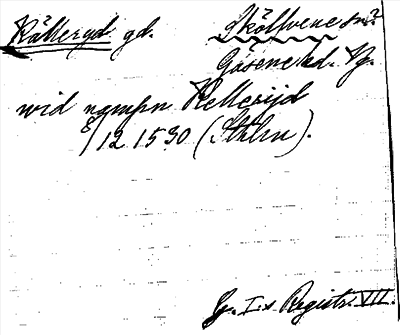 Källeryd gd. Sköllvene sn?
Gäsene hd. Vg.
wid nampn Kellerijd
8/12 1530 (Sthlm).
G. I:s Registr. VII.